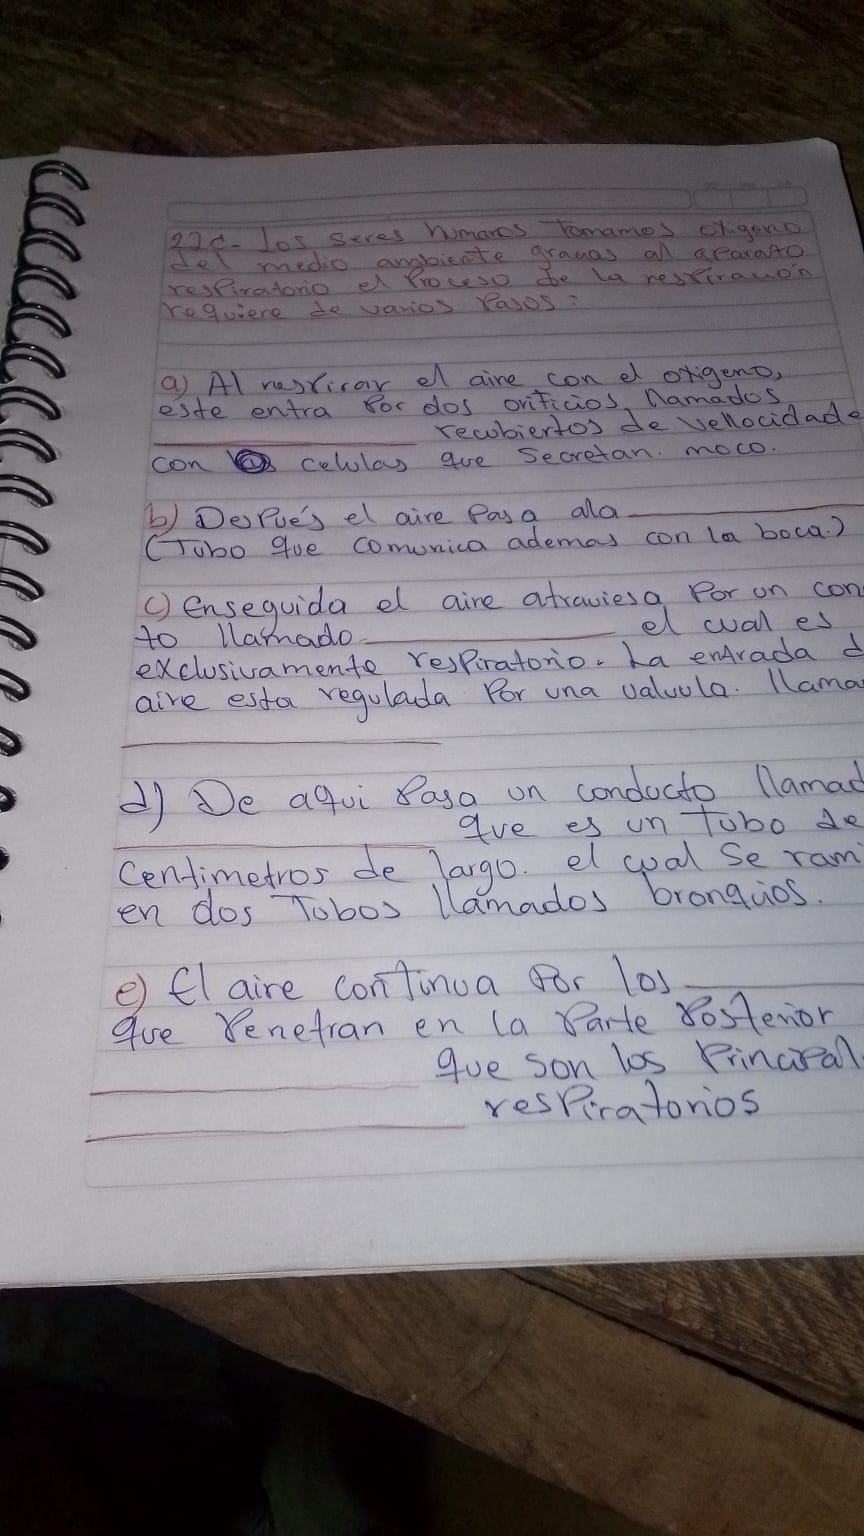 22c- los seres humanos tomamos oxigeno
del medio ambiente gracias al aparato
respiratorio el Proceso de la respiración
requiere de varios Pasos:
a) Al respirar el aire con el oxigeno,
este entra Por dos orificios, llamados
recubiertos de vellocidade
con celulas que secretan. moco.
b) Después el aire Pasa ala
(Tubo que comunica ademas con la boca.)
c) enseguida el aire atraviesa Por un con
to llamado el cual es
exclusivamente resPiratorio. La entrada d
aire esta regulada Por una valvula. llama
d) De aqui Pasa un conducto llamad
que es un Tubo de
Centimetros de largo. el cual Se rami
en dos Tubos llamados bronquios.
e) El aire continua Por los
que Penetran en la Parte Posterior
que son los Principal
resPiratorios